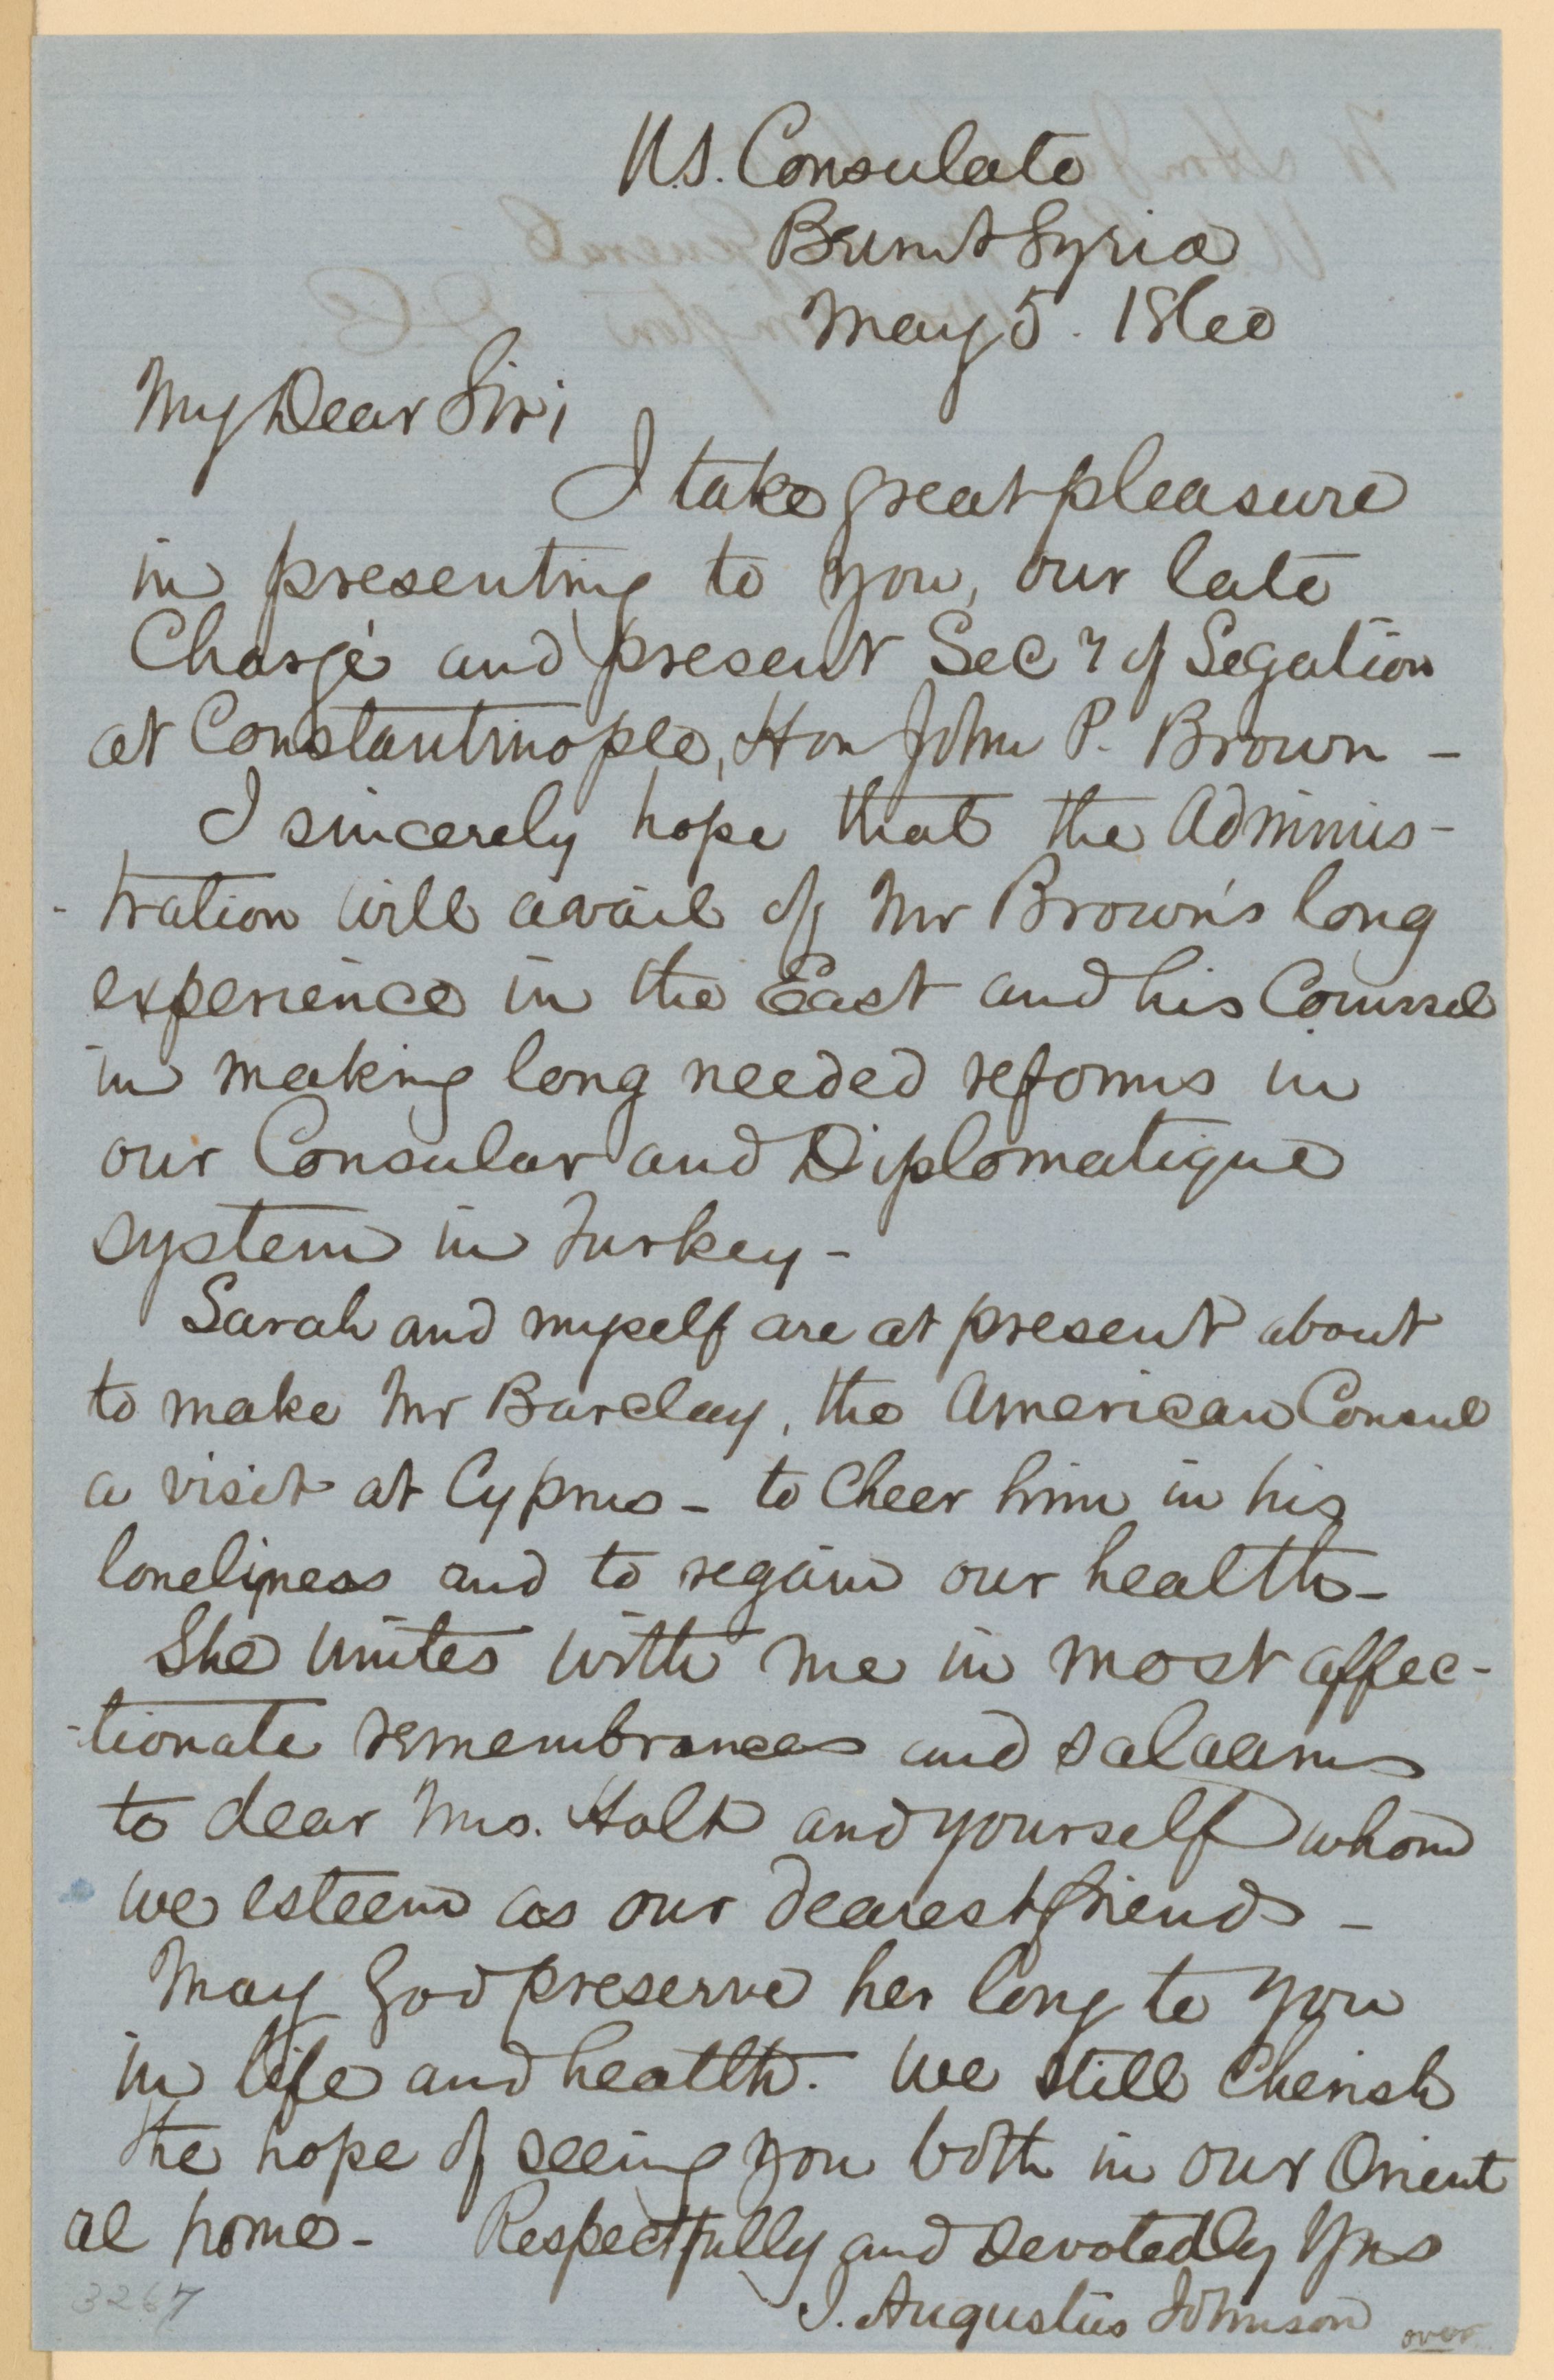 U.S. Consulate
Beirut Syria
May 5. 1860
My Dear Sir;
I take great pleasure
in presenting to you, our late
Chargé and present Secy of Legation
at Constantinople, Hon John P. Brown -
I sincerely hope that the Adminis-
-tration will avail of Mr Brown's long
experience in the East and his Counsel
in making long needed reforms in
our Consular and Diplomatique
system in Turkey -
Sarah and myself are at present about
to make Mr Barclay, the American Consul
a visit at Cyprus - to cheer him in his
loneliness and to regain our health -
She unites with me in most affec-
-tionate remembrances and salaams
to dear Mrs. Holt and yourself whom
we esteem as our dearest friends -
May God preserve her long to you
in life and health. We still cherish
the hope of seeing you both in our Orient
al home - Respectfully and devotedly Yrs
J. Augustus Johnson
over
3267